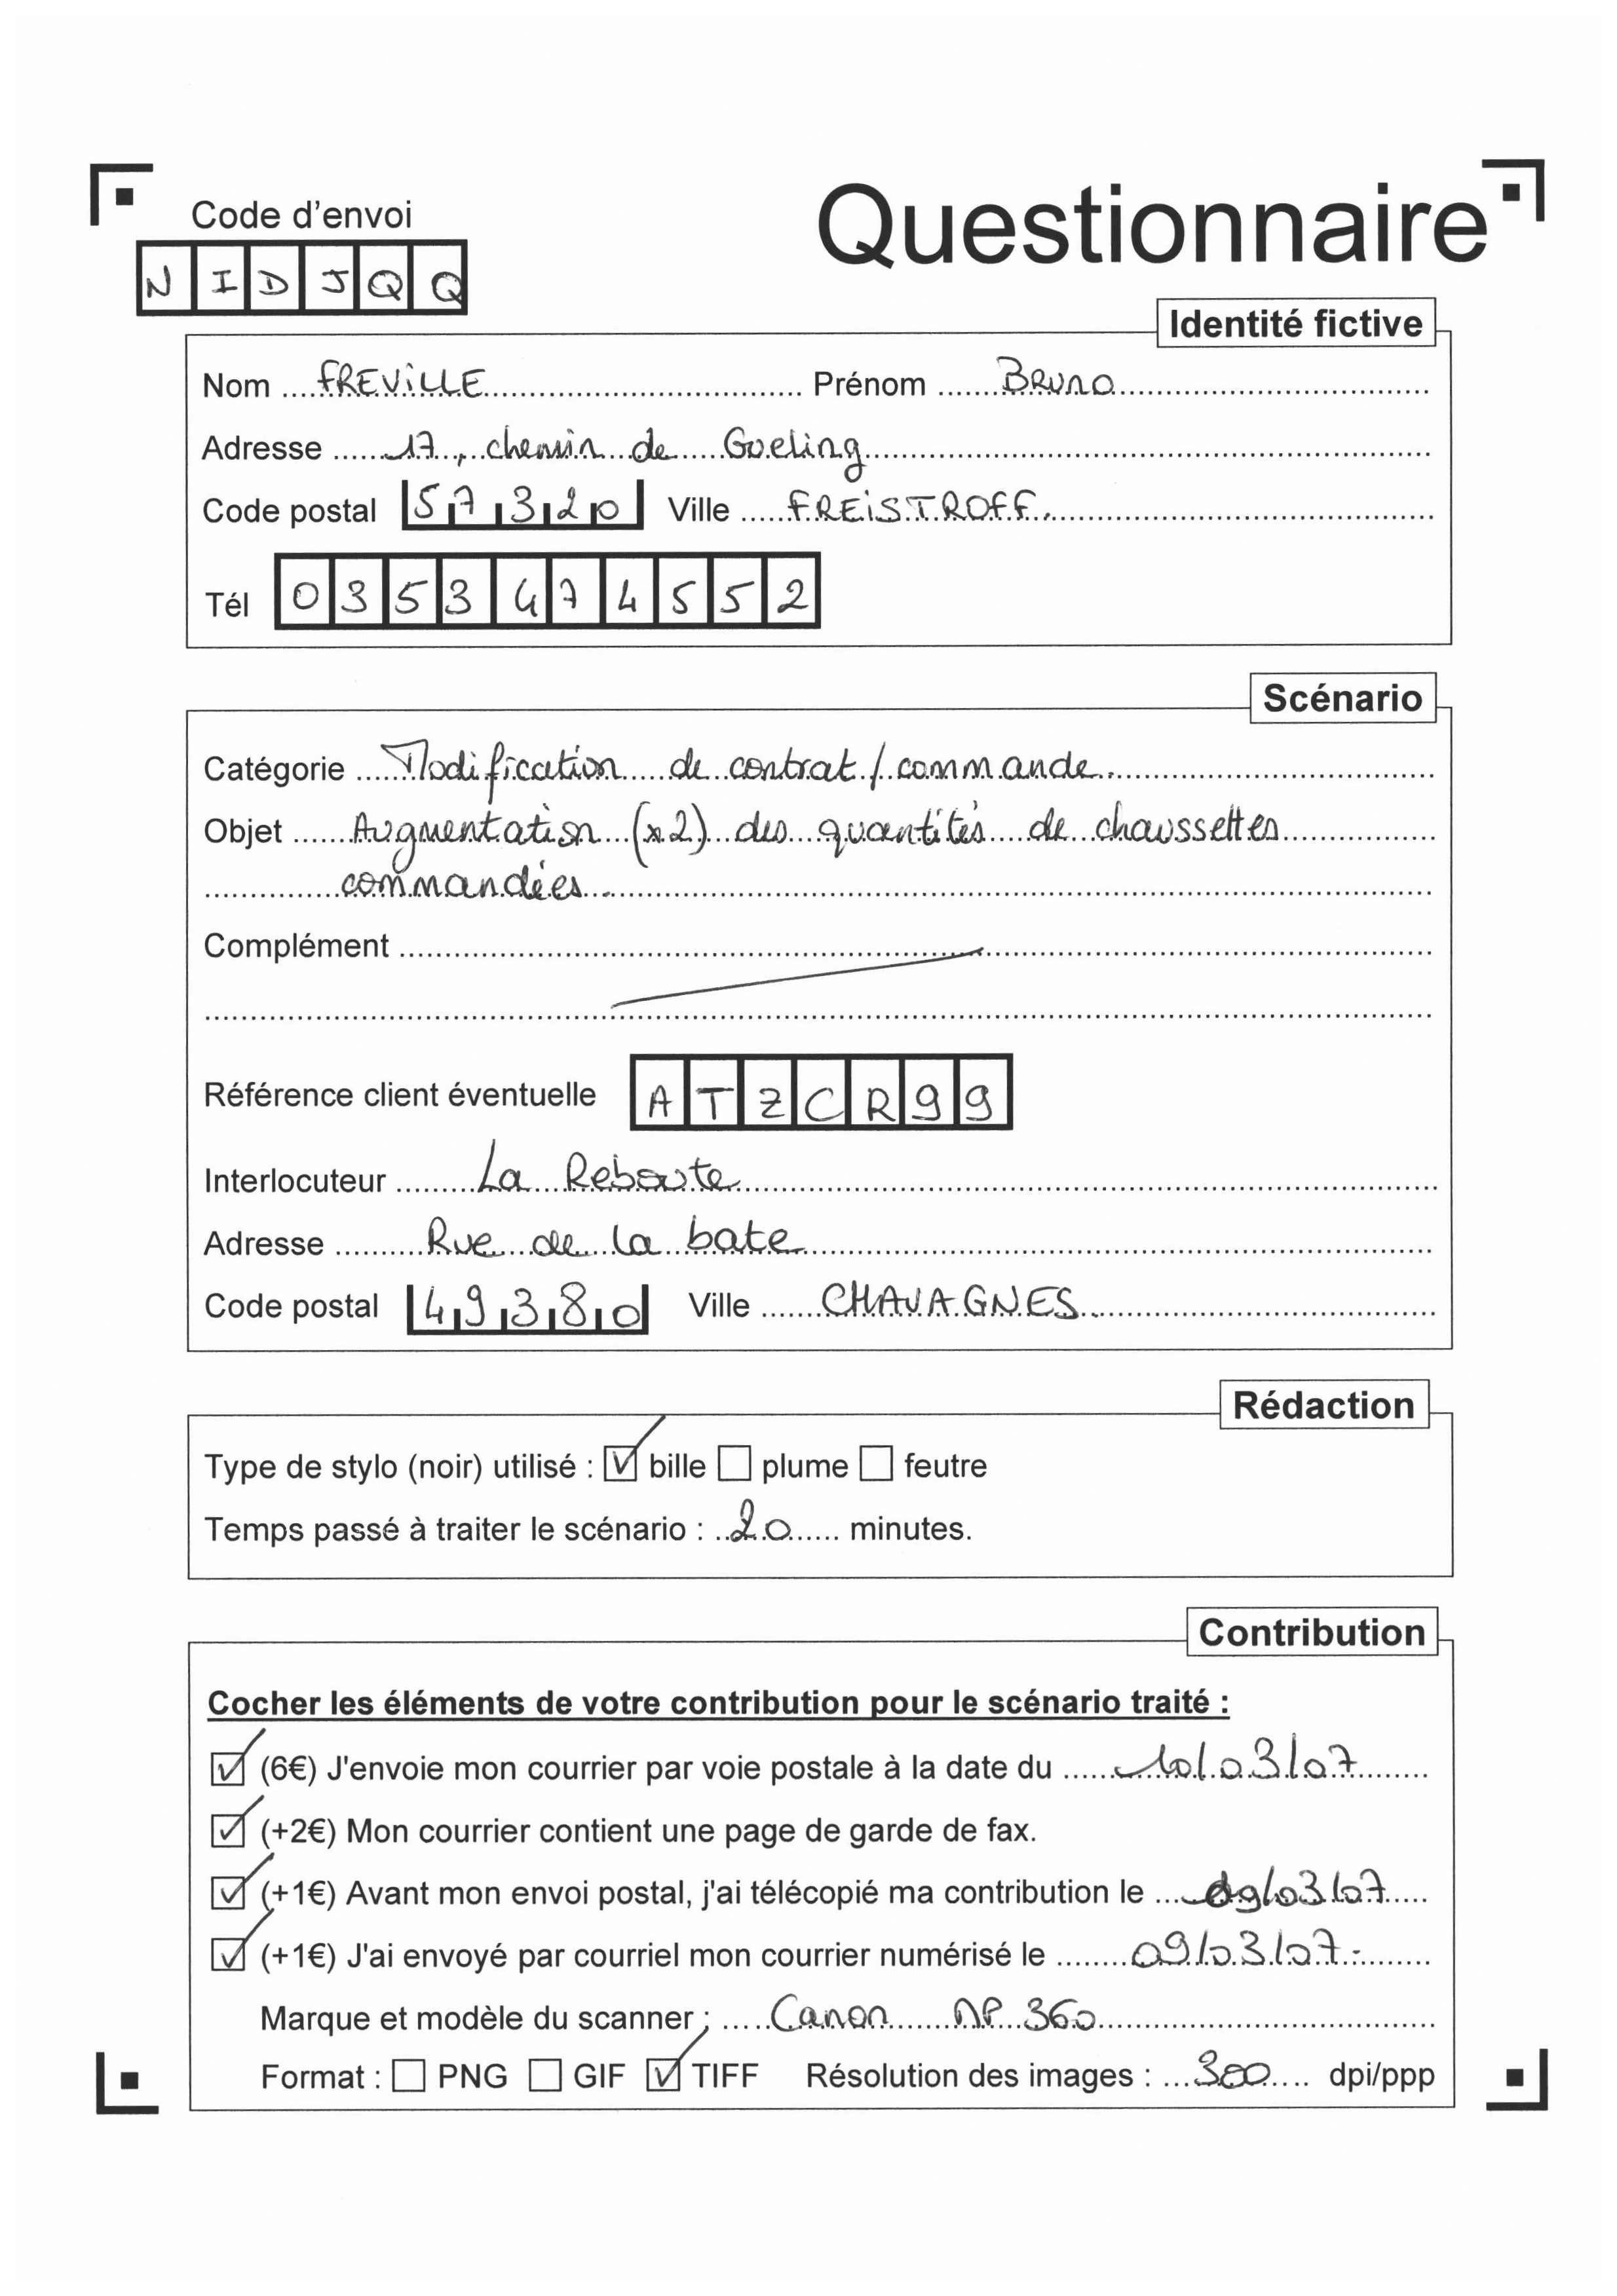 Code d'envoi
Questionnaire
N I D J Q Q
Identité fictive
Nom FREViLLE Prénom Bruno
Adresse 17, chemin de Goeling
Code postal 57320 Ville FREiSTROFF.
Tél 0353474552
Scénario
Catégorie Modification de contrat / commande.
Objet Augmentation (x2) des quantités de chaussettes
commandées.
Complément
Référence client éventuelle A T Z C R 9 9
Interlocuteur La Reboute
Adresse Rue de la bate
Code postal 49380 Ville CHAVAGNES.
Rédaction
Type de stylo (noir) utilisé : bille plume feutre
Temps passé à traiter le scénario : 20 minutes.
Contribution
Cocher les éléments de votre contribution pour le scénario traité :
(6€) J'envoie mon courrier par voie postale à la date du 10/03/07
(+2€) Mon courrier contient une page de garde de fax.
(+1€) Avant mon envoi postal, j'ai télécopié ma contribution le 09/03/07
(+1€) J'ai envoyé par courriel mon courrier numérisé le 09/03/07.
Marque et modèle du scanner : Canon MP 360
Format : PNG GIF TIFF Résolution des images : 300 dpi/ppp